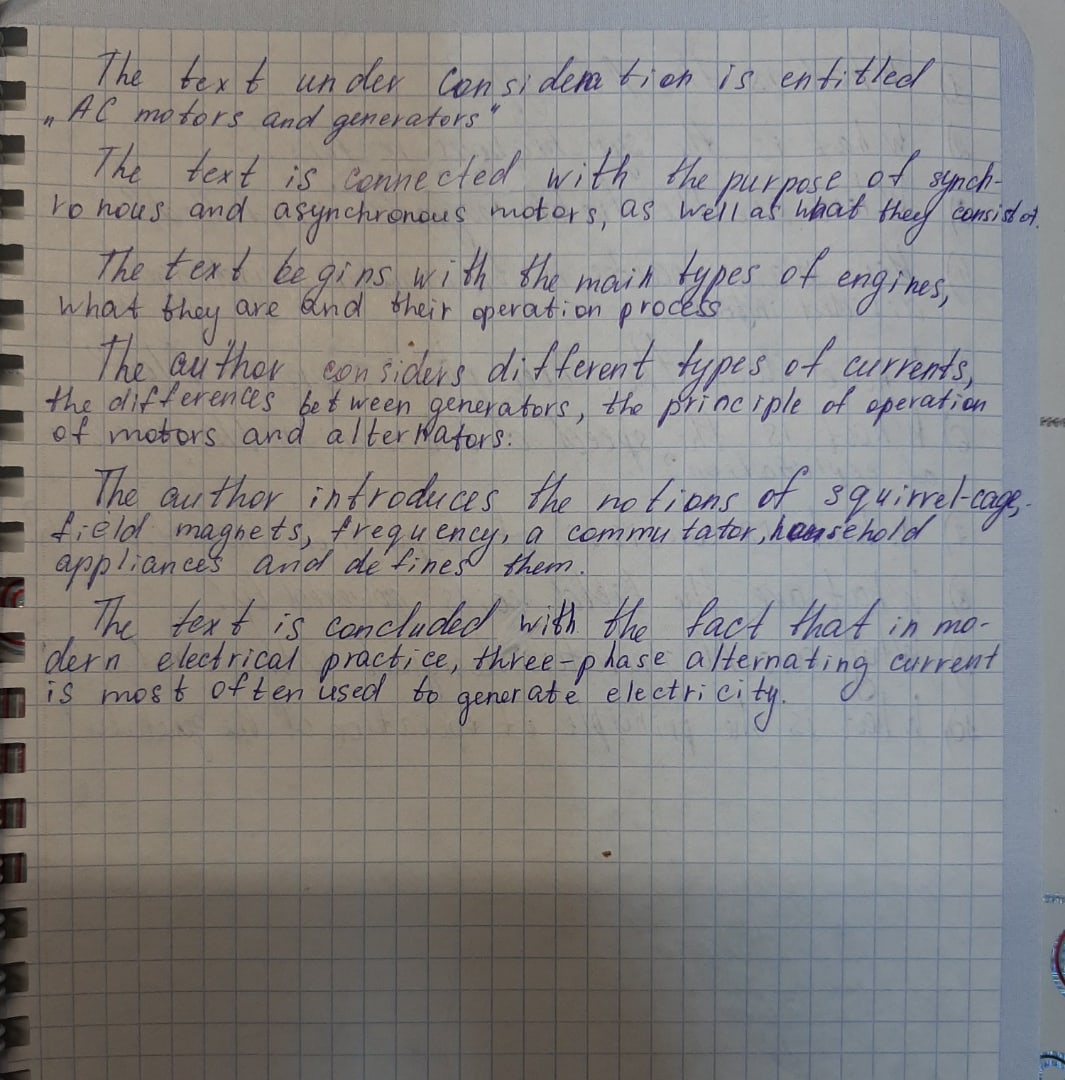 The text under consideration is entitled
„AC motors and generators“
The text is connected with the purpose of synch-
ronous and asynchronous motors, as well as what they consist of.
The text begins with the main types of engines,
what they are and their operation process
The author considers different types of currents,
the differences between generators, the principle of operation
of motors and alternators.
The author introduces the notions of squirrel-cage,
field magnets, frequency, a commutator, household
appliances and defines them.
The text is concluded with the fact that in mo-
dern electrical practice, three-phase alternating current
is most often used to generate electricity.